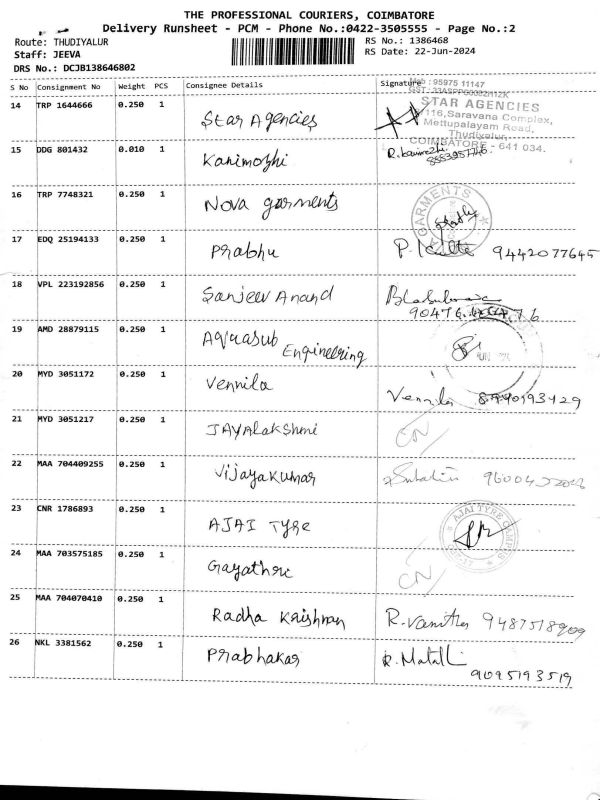 THE PROFESSIONAL COURIERS, COIMBATORE
Delivery Runsheet - PCM - Phone No.:0422-3505555 - Page No.:2
Route: THUDIYALUR RS No.: 1386468
Staff: JEEVA RS Date: 22-Jun-2024
DRS No.: DCJB138646802
S No Consignment No Weight PCS Consignee Details Signature
Mob : 95975 11147
14 TRP 1644666 0.250 1 Star Agencies
STAR AGENCIES
116, Saravana Complex,
Mettupalayam Road,
Thudiyalur,
COIMBATORE - 641 034.
15 DDG 801432 0.010 1 Kanimozhi R. Kanimozhi
16 TRP 7748321 0.250 1 Nova garments GARMENTS
17 EDQ 25194133 0.250 1 Prabhu 9442077645
18 VPL 223192856 0.250 1 Sanjeev Anand
19 AMD 28879115 0.250 1 Aquasub Engineering
20 MYD 3051172 0.250 1 Vennila Vennila 8940193429
21 MYD 3051217 0.250 1 JAYAlakshmi CN
22 MAA 704409255 0.250 1 Vijayakumar
23 CNR 1786893 0.250 1 AJAI Tyre AJAI TYRE
24 MAA 703575185 0.250 1 Gayathri CN
25 MAA 704070410 0.250 1 Radha Krishnan R. Vanitha 9487518909
26 NKL 3381562 0.250 1 Prabhakar 9095193519